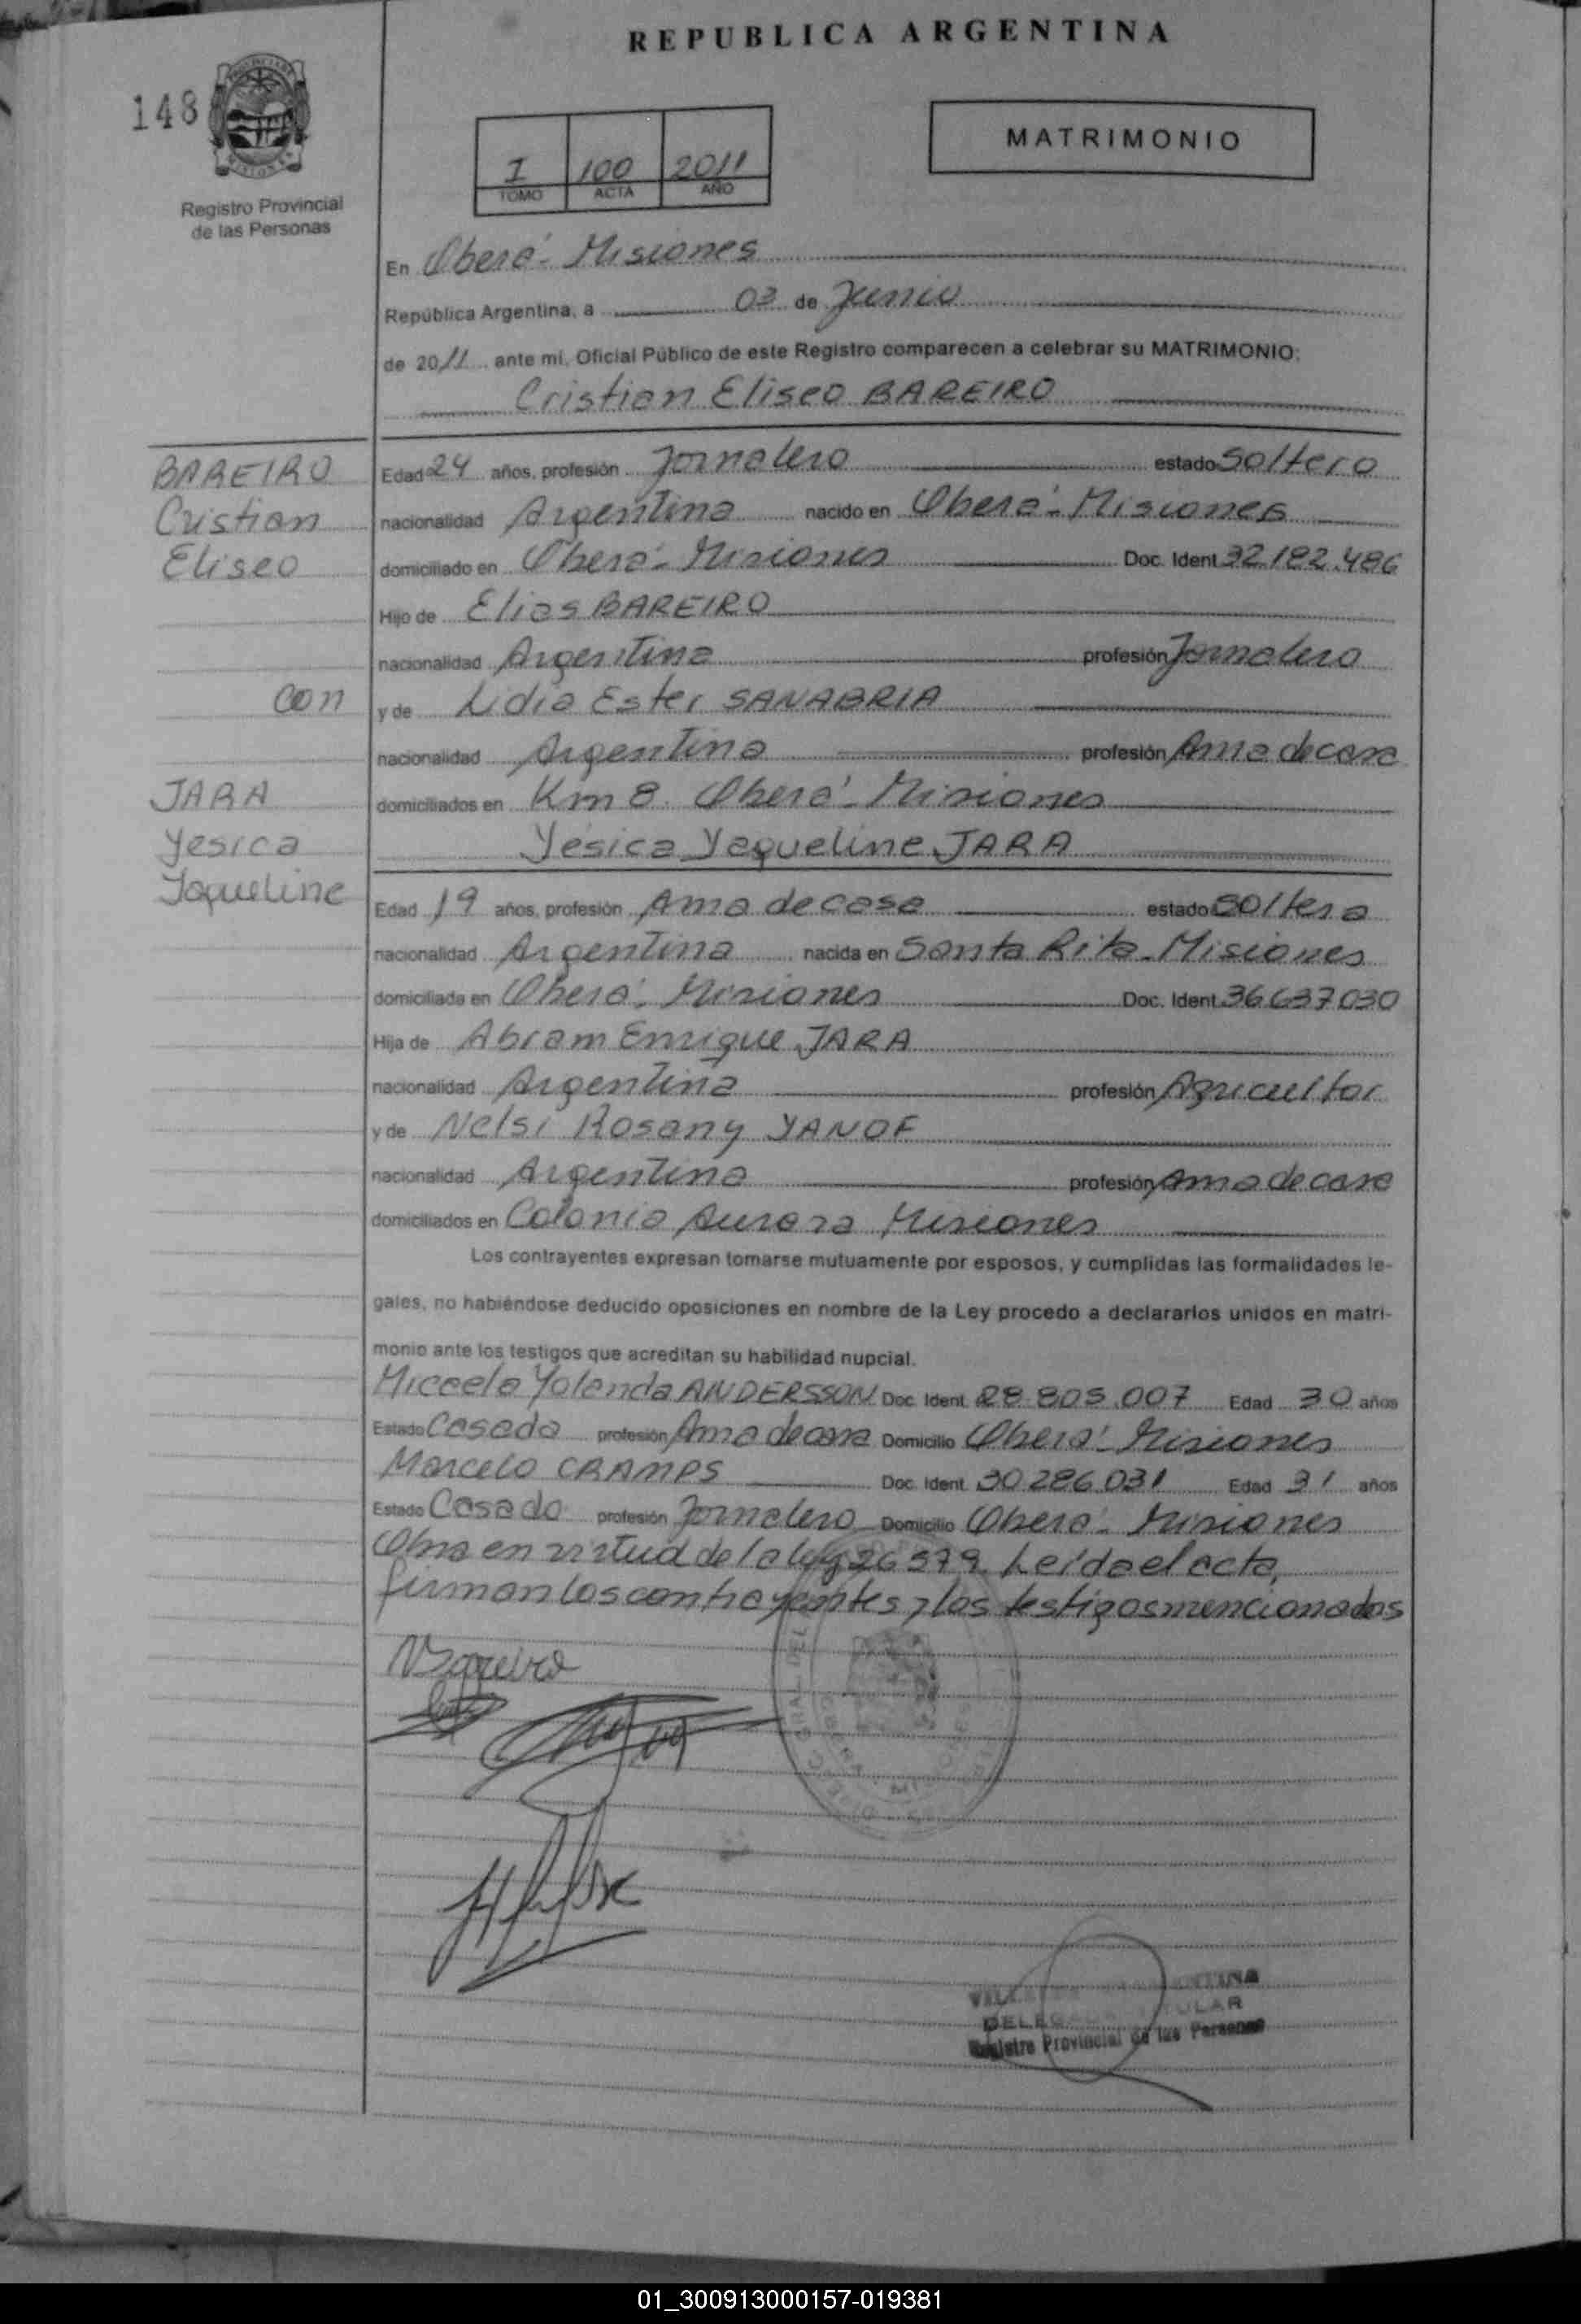 REPUBLICA ARGENTINA
148
Registro Provincial
de las Personas
I 100 2011
TOMO ACTA AÑO
MATRIMONIO
En Oberá - Misiones
República Argentina, a 03 de Junio
de 2011 ante mí, Oficial Público de este Registro comparecen a celebrar su MATRIMONIO:
Cristian Eliseo BAREIRO
BAREIRO
Cristian
Eliseo
con
JARA
Yesica
Yaqueline
Edad 24 años, profesión Jornalero estado Soltero
nacionalidad Argentina nacido en Oberá - Misiones
domiciliado en Oberá - Misiones Doc. Ident 32.182.486
Hijo de Elias BAREIRO
nacionalidad Argentina profesión Jornalero
y de Lidia Ester SANABRIA
nacionalidad Argentina profesión Ama de casa
domiciliados en Km 8 Oberá - Misiones
Yésica Yaqueline JARA
Edad 19 años, profesión Ama de casa estado Soltera
nacionalidad Argentina nacida en Santa Rita - Misiones
domiciliada en Oberá - Misiones Doc. Ident 36.637.030
Hija de Abram Enrique JARA
nacionalidad Argentina profesión Agricultor
y de Nelsi Rosany YANOF
nacionalidad Argentina profesión Ama de casa
domiciliados en Colonia Aurora Misiones
Los contrayentes expresan tomarse mutuamente por esposos, y cumplidas las formalidades le-
gales, no habiéndose deducido oposiciones en nombre de la Ley procedo a declararlos unidos en matri-
monio ante los testigos que acreditan su habilidad nupcial.
Micaela Yolanda ANDERSSON Doc. Ident. 28.805.007 Edad 30 años
Estado Casada profesión Ama de casa Domicilio Oberá - Misiones
Marcelo CRAMPS Doc. Ident. 30.286.031 Edad 31 años
Estado Casado profesión Jornalero Domicilio Oberá - Misiones
Obra en virtud de la ley 26579. Leída el acta,
firman los contrayentes y los testigos mencionados
DELEGADA TITULAR
Registro Provincial de las Personas
01_300913000157-019381